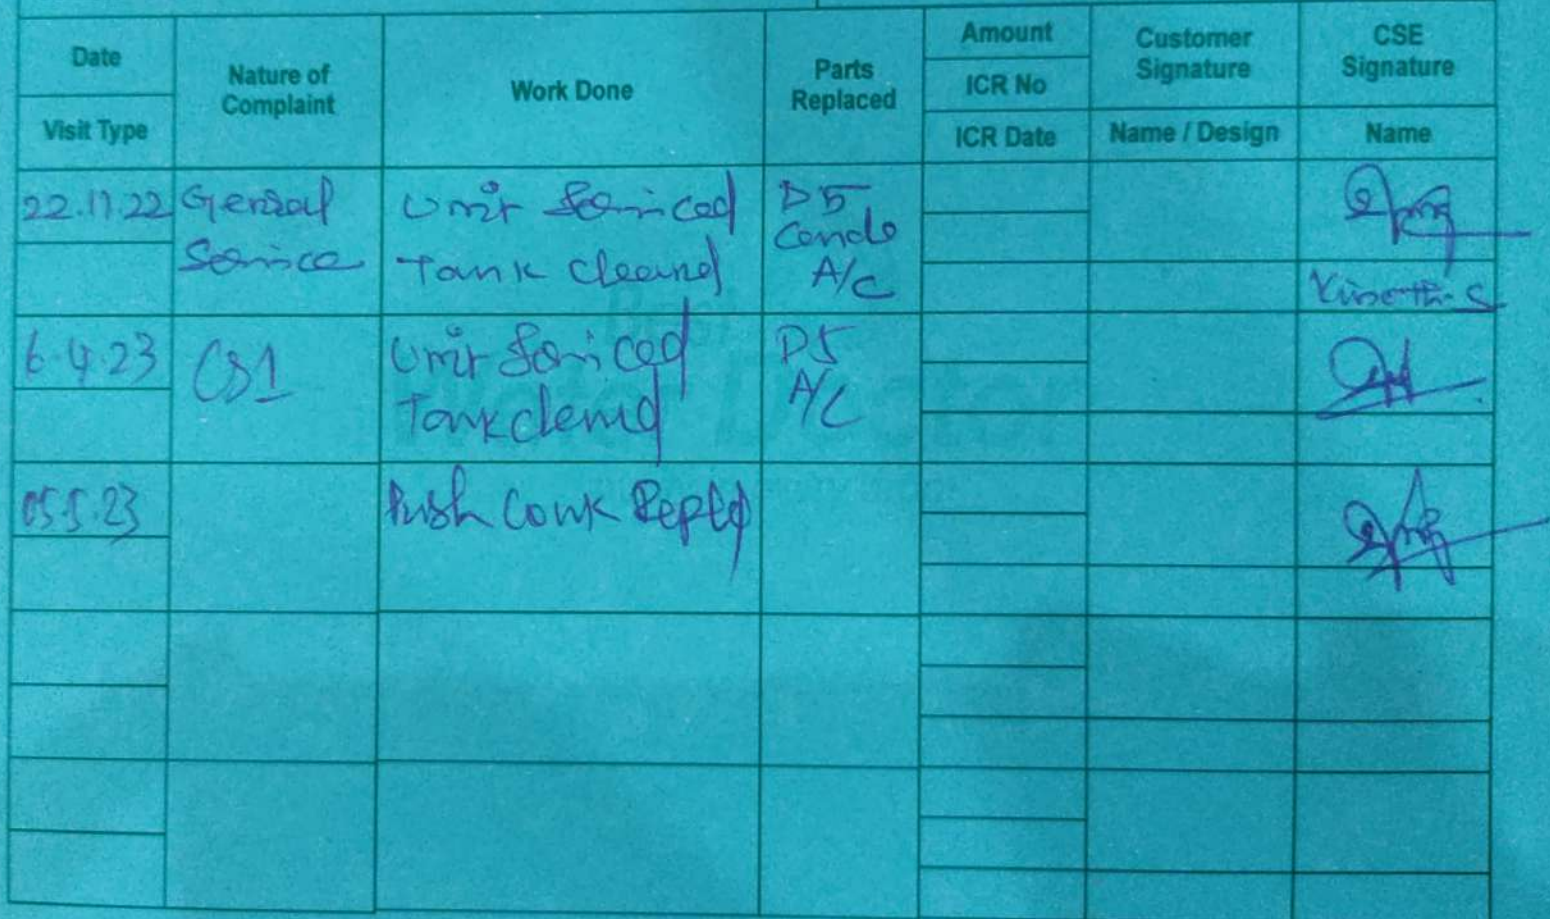 Date
Visit Type
Nature of
Complaint
Work Done
Parts
Replaced
Amount
ICR No
ICR Date
Customer
Signature
Name / Design
CSE
Signature
Name
22.11.22
General
Service
Unit Serviced
Tank Cleaned
D5
Condo
A/C
Vinoth. S
6.4.23
CS1
Unit Serviced
Tank cleaned
D5
A/C
05.5.23
Push Couk Repled